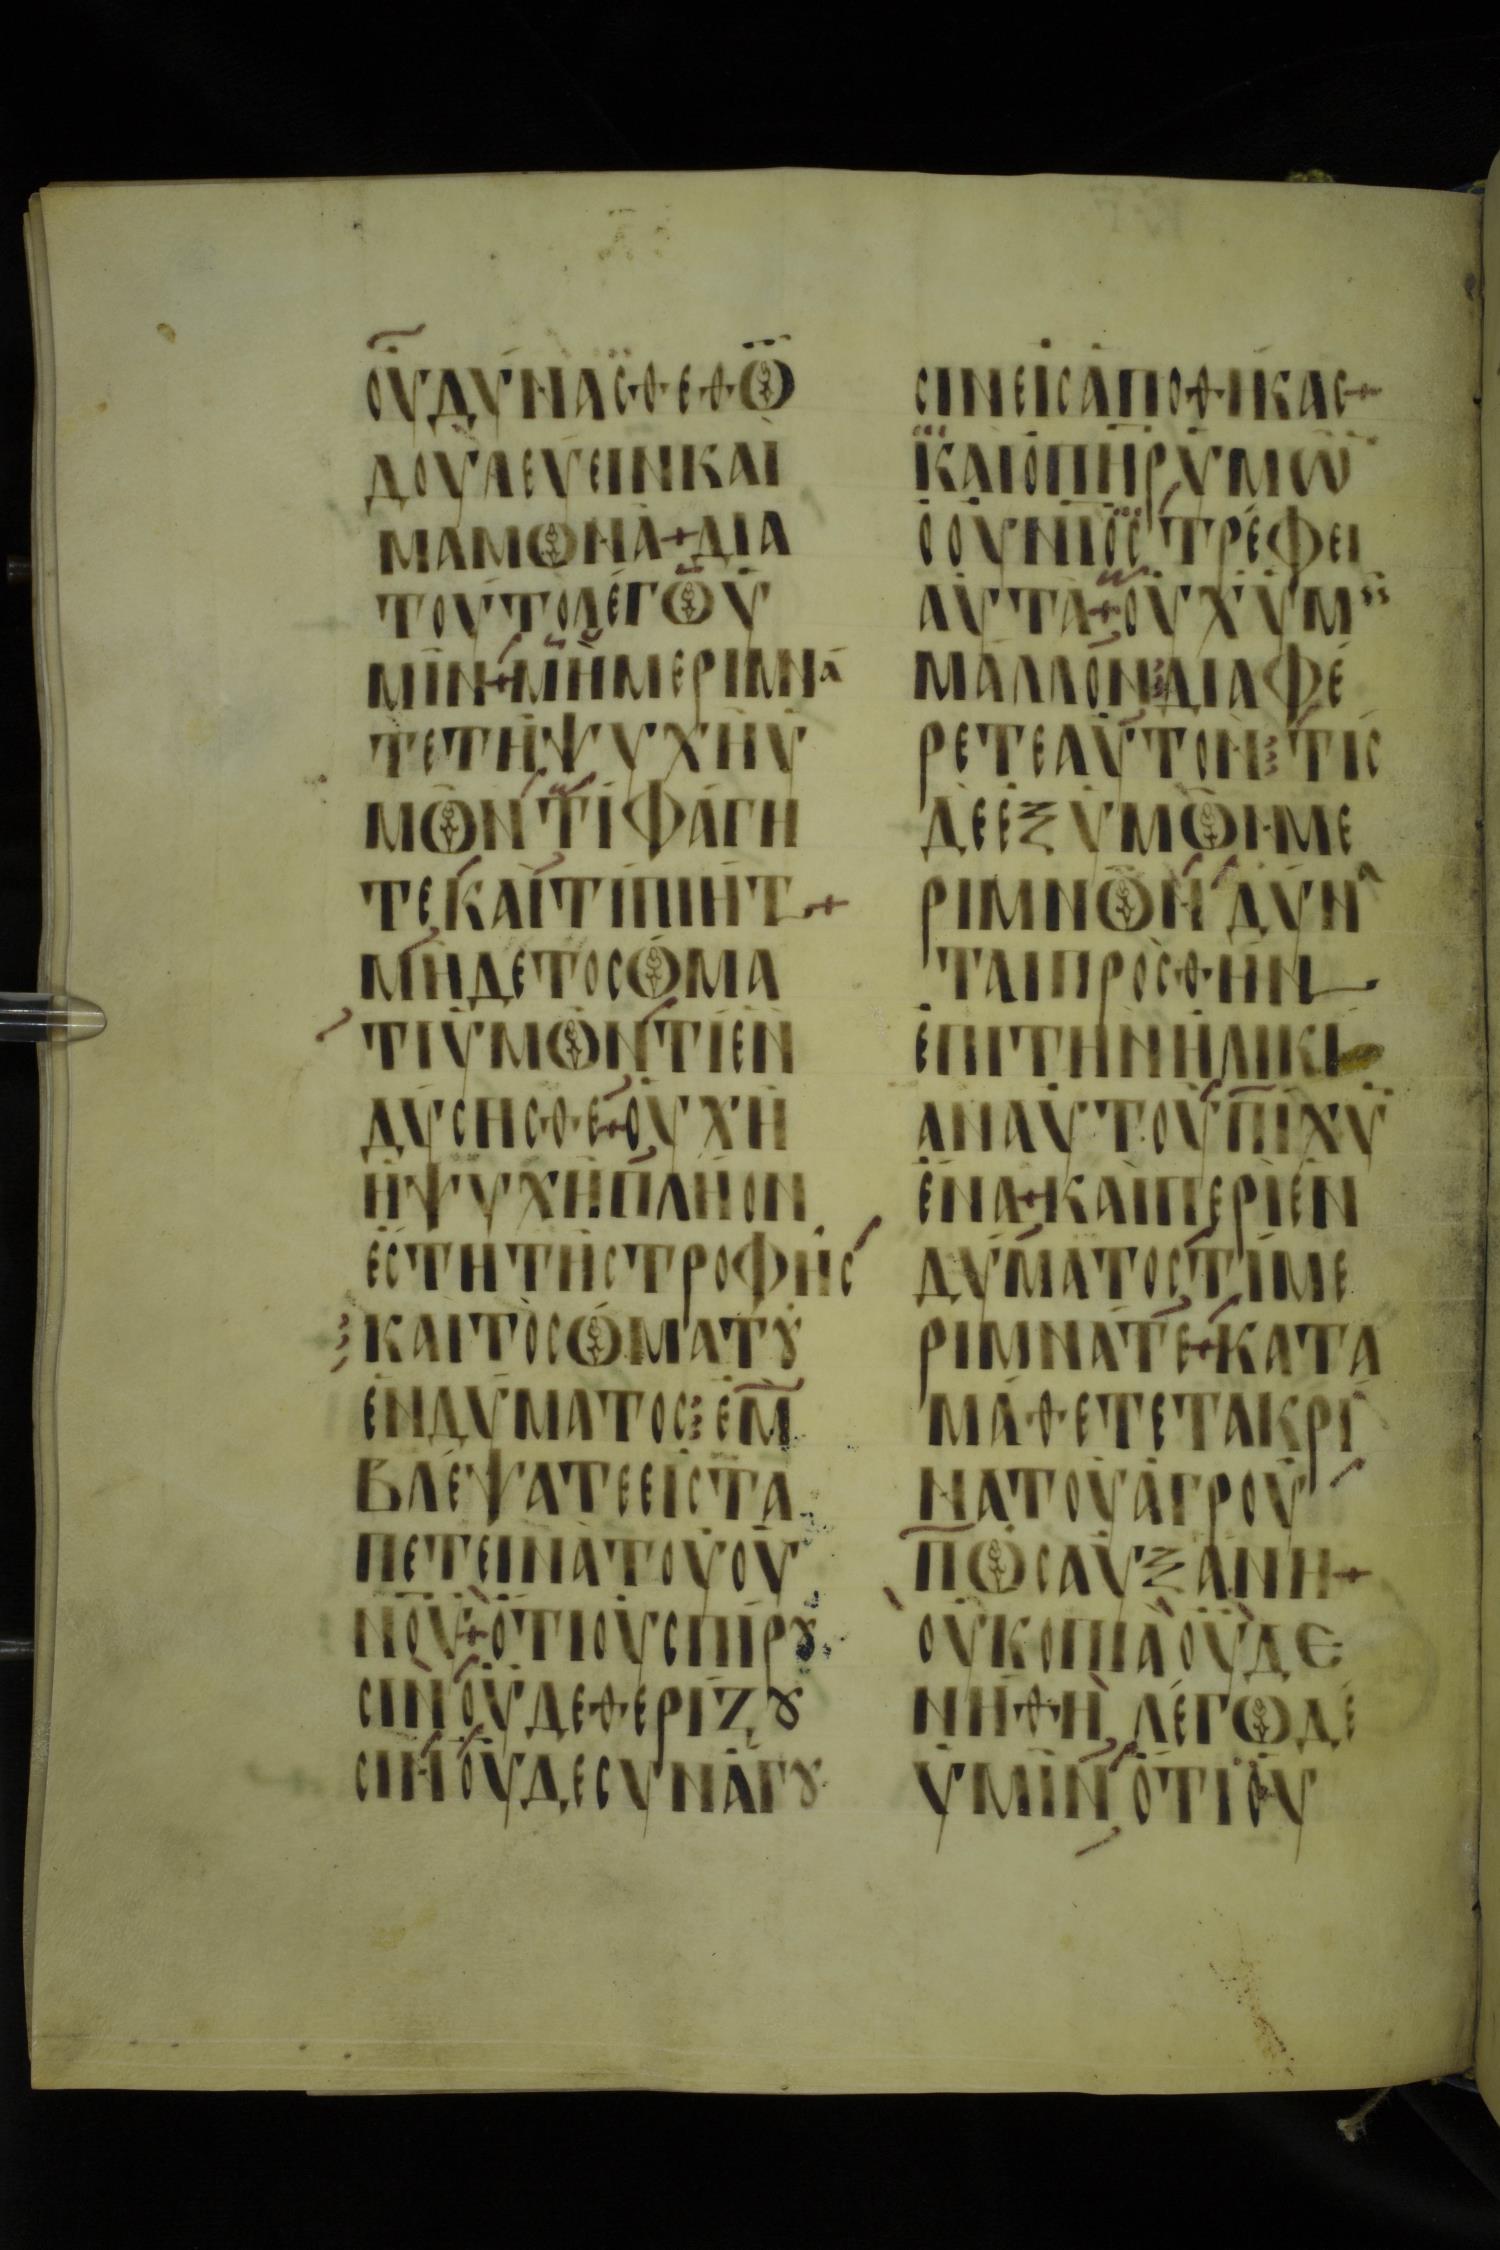 ΟΥΔΥΝΑСΘΕΘΩ
ΔΟΥΛΕΥΕΙΝΚΑΙ
ΜΑΜΩΝΑ+ΔΙΑ
ΤΟΥΤΟΛΕΓΩΥ
ΜΙΝ+ΜΗΜΕΡΙΜΝΑ
ΤΕΤΗΨΥΧΗΥ
ΜΩΝΤΙΦΑΓΗ
ΤΕΚΑΙΤΙΠΙΗΤ+
ΜΗΔΕΤΟСΩΜΑ
ΤΙΥΜΩΝΤΙΕΝ
ΔΥСΗСΘΕ+ΟΥΧΗ
ΗΨΥΧΗΠΛΗΟΝ
ΕСΤΗΤΗСΤΡΟΦΗС
ΚΑΙΤΟСΩΜΑΤȢ
ΕΝΔΥΜΑΤΟС⁝ΕΜ
ΒΛΕΨΑΤΕΕΙСΤΑ
ΠΕΤΕΙΝΑΤΟΥΟΥ
ΝΟΥ+ΟΤΙΟΥСΠΙΡȢ
СΙΝΟΥΔΕΘΕΡΙΖȢ
СΙΝΟΥΔΕСΥΝΑΓȢ
СΙΝΕΙСΑΠΟΘΙΚΑС+
ΚΑΙΟΠΗΡΥΜΩ
ΟΟΥΝΙΟСΤΡΕΦΕΙ
ΑΥΤΑ+ΟΥΧΥΜ
ΜΑΛΛΟΝ⁝ΔΙΑΦΕ
ΡΕΤΕΑΥΤΟΝ⁝ΤΙС
ΔΕΕΞΥΜΩΝΜΕ
ΡΙΜΝΩΝΔΥΝ
ΤΑΙΠΡΟСΘΗΝ
ΕΠΙΤΗΝΗΛΙΚΙ
ΑΝΑΥΤΟΥΠΙΧΥ
ΕΝΑ+ΚΑΙΠΕΡΙΕΝ
ΔΥΜΑΤΟСΤΙΜΕ
ΡΙΜΝΑΤΕ+ΚΑΤΑ
ΜΑΘΕΤΕΤΑΚΡΙ
ΝΑΤΟΥΑΓΡΟΥ
ΠΩСΑΥΞΑΝΗ+
ΟΥΚΟΠΙΑΟΥΔΕ
ΝΗΘΗΛΕΓΩΔΕ
ΥΜΙΝΟΤΙΟΥ